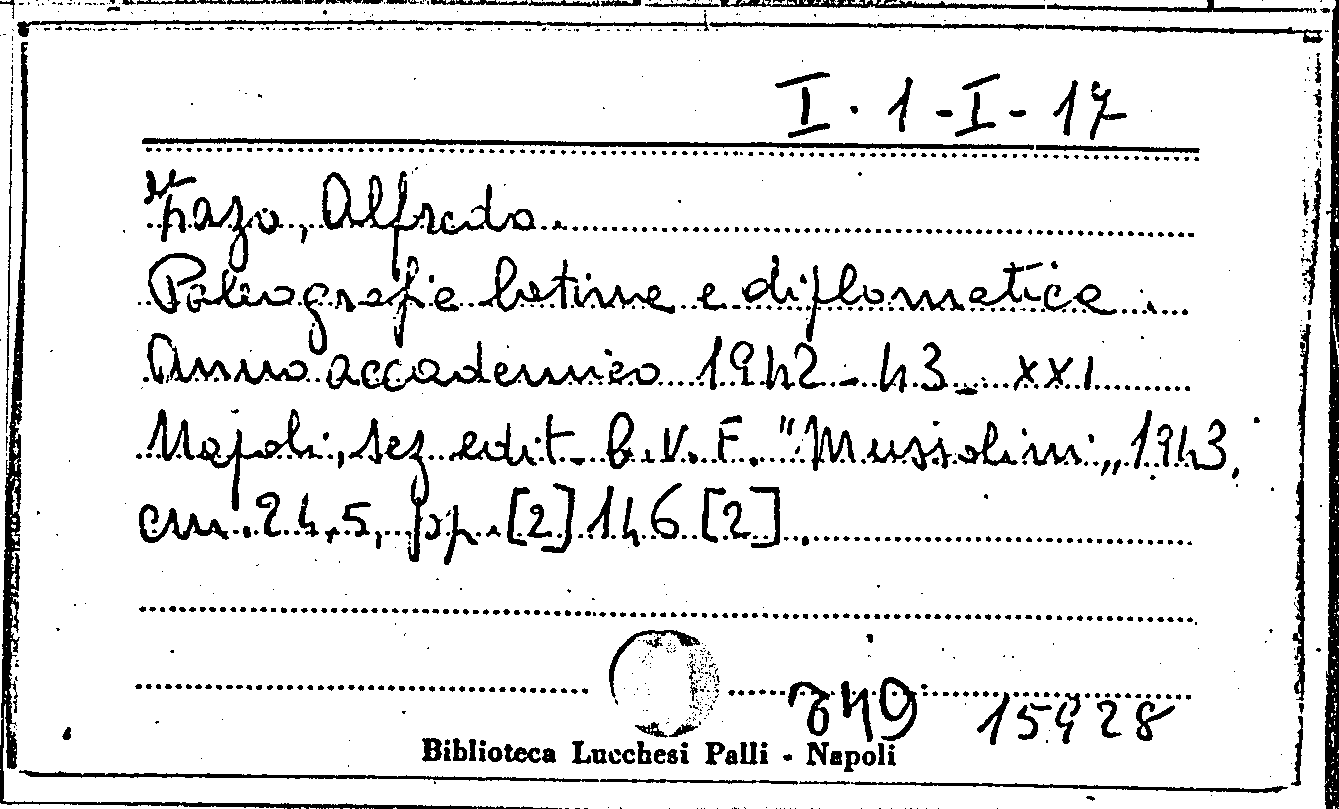 I. 1 - I - 17
Zazo, Alfredo.
Paleografia latina e diplomatica.
Anno accademico 1942-43-XXI
Napoli, sez. edit. G.U.F. "Mussolini„, 1943.
cm. 24,5, pp. [2] 146 [2].
15928
Biblioteca Lucchesi Palli - Napoli